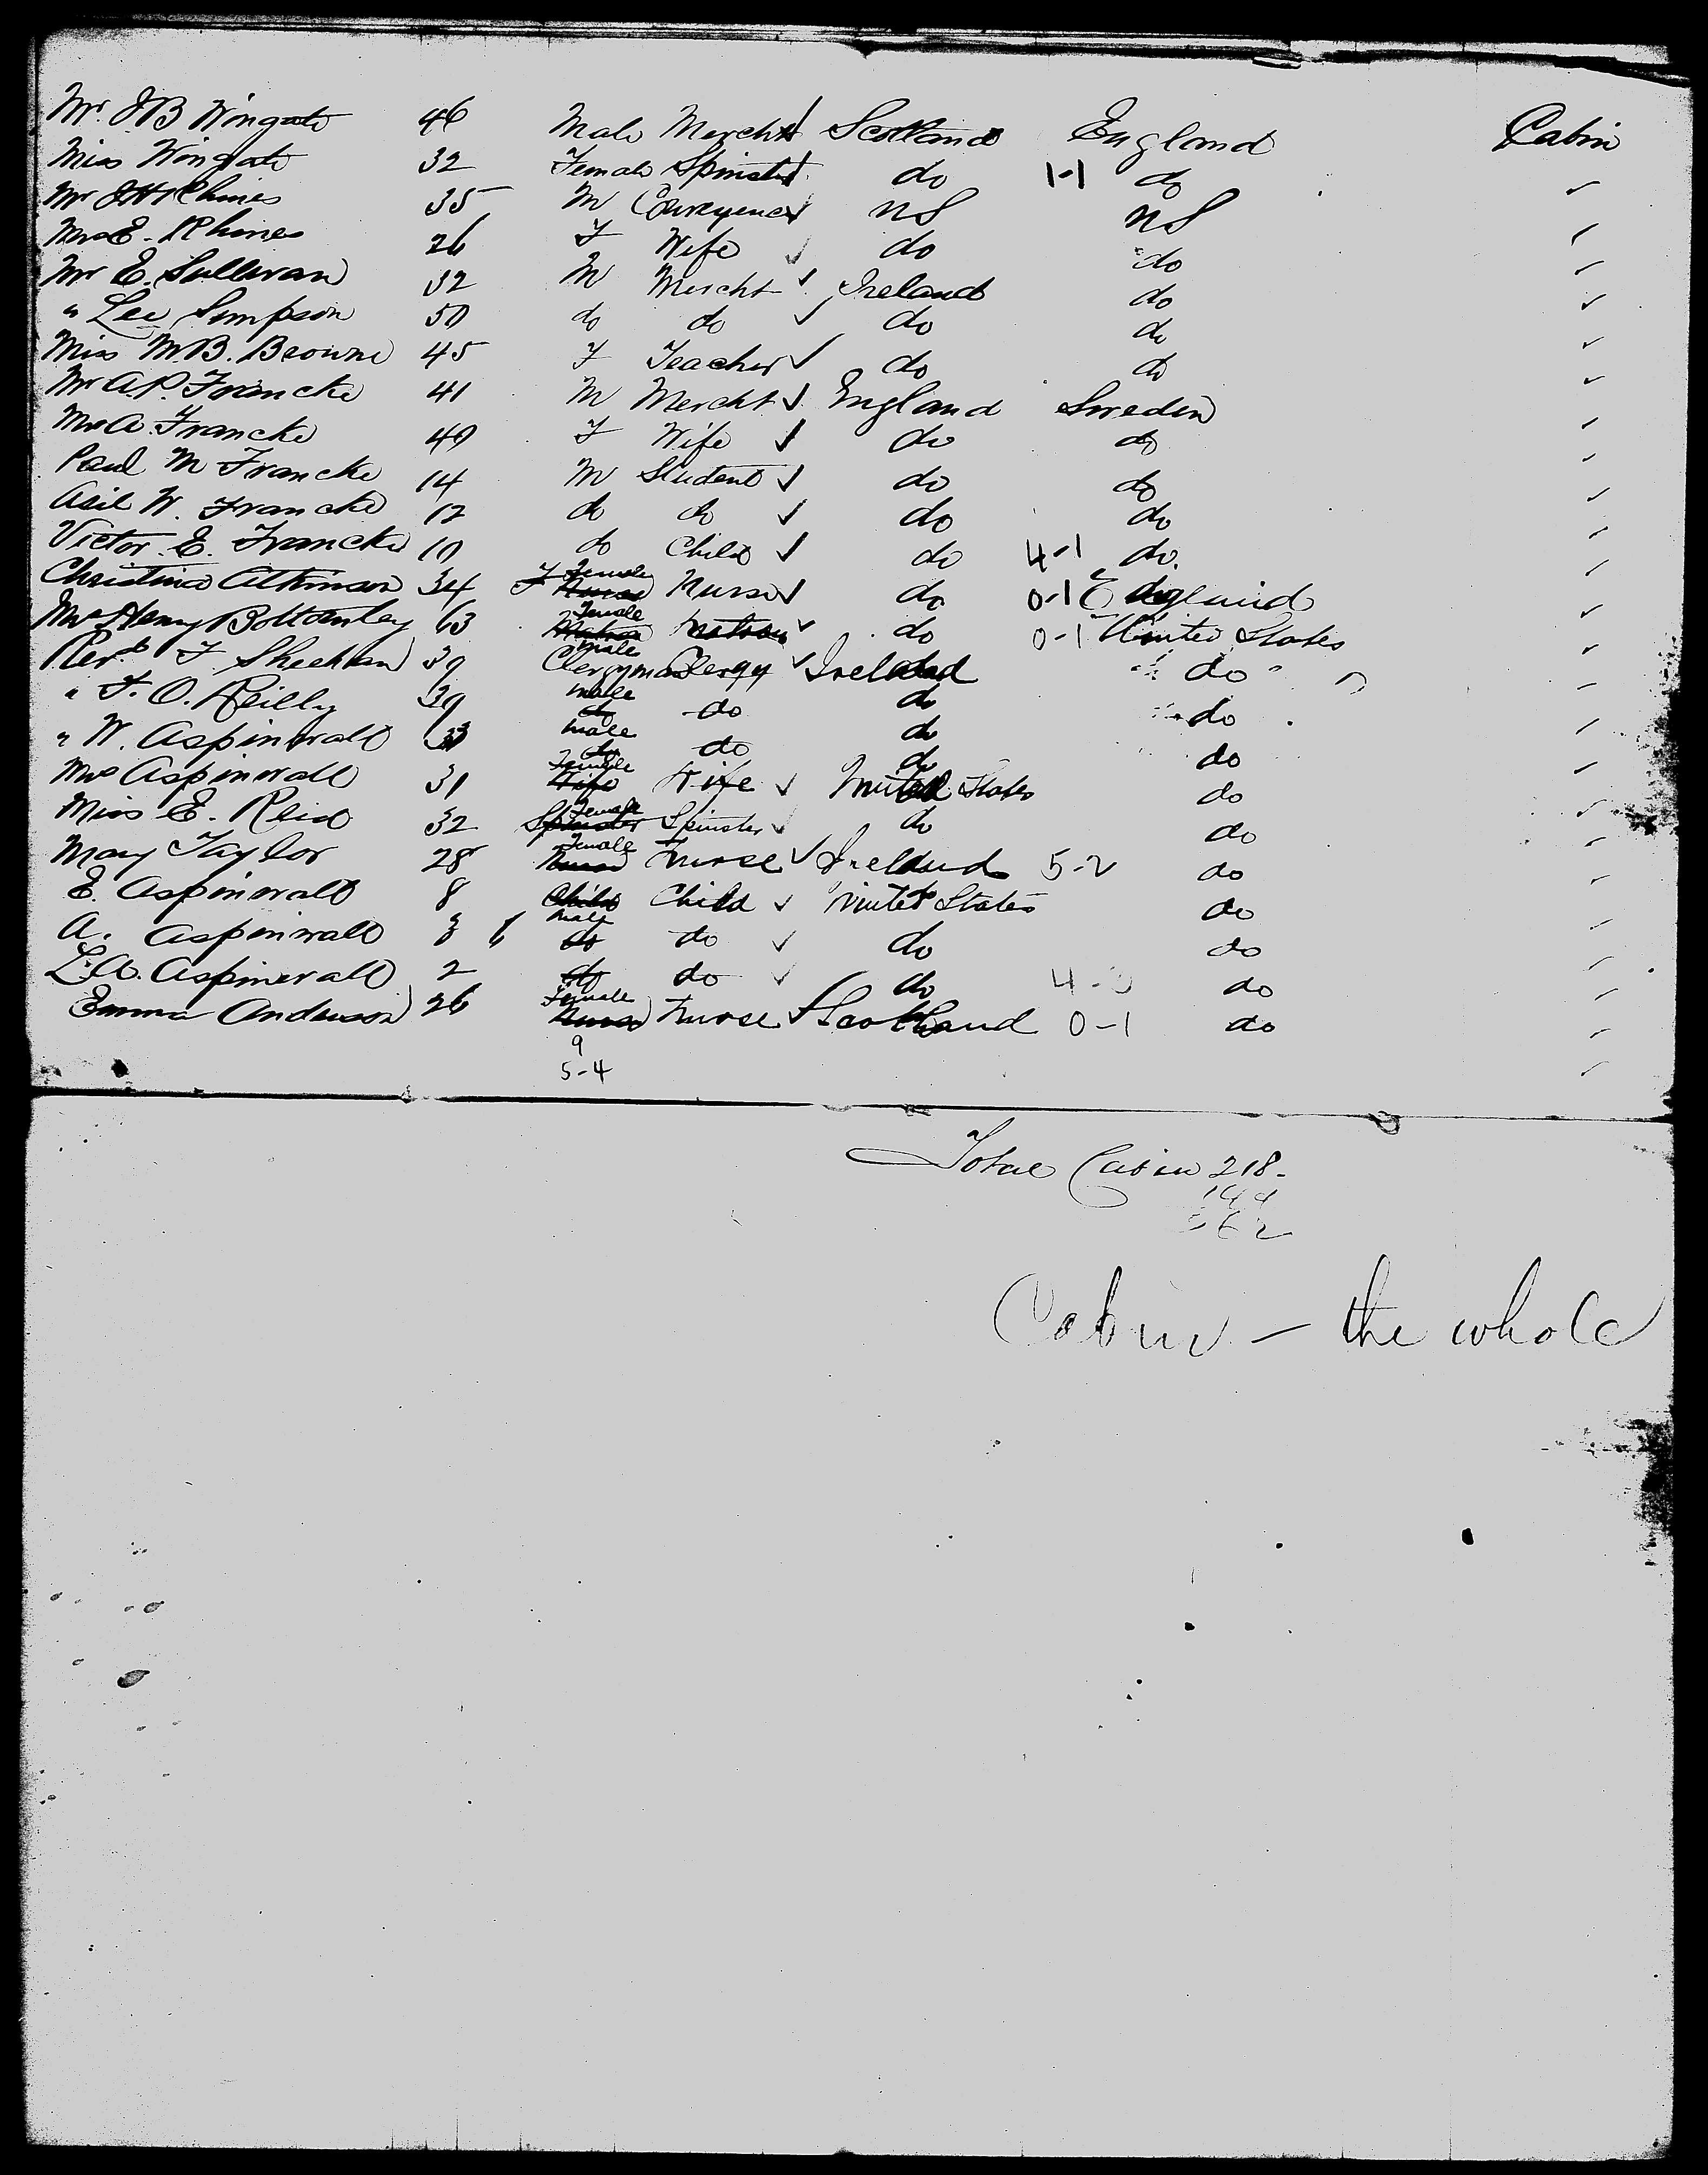 Mr. J B Wingate 46 Male Mercht Scotland England Cabin
Miss Wingate 32 Female Spinster do 1-1 do
Mr J H Rhines 35 M Conveyencer US US
Mrs E. Rhines 26 F Wife do do
Mr E. Sullivan 32 M Mercht Ireland do
" Lee Simpson 50 do do do do
Miss M.B. Browne 45 F Teacher do do
Mr A.P. Francke 41 M Mercht England Sweden
Mrs A. Francke 40 F Wife do do
Paul M Francke 14 M Student do do
Axil W. Francke 12 do do do do
Victor. E. Francke 10 do Child do 4-1 do.
Christina Atkinson 34 F Female Nurse do 0-1 England
Mrs Henry Bottomley 63 Female Matron do 0-1 United States
Revd F Sheehan 39 Male Clergyman Clergy Ireland " do "
" F. O. Reilly 39 male do do do do
" W. Aspinwall 33 male do do do do
Mrs Aspinwall 31 Female Wife Wife United States do
Miss E. Reid 32 Female Spinster Spinster do do
Mary Taylor 28 Female Nurse Nurse Ireland 5-2 do
E. Aspinwall 8 Child Child United States do
A. Aspinwall 6 male do do do do
L.A. Aspinwall 2 do do do do
Emma Anderson 26 Female Nurse Nurse Scotland 0-1 do
9
5-4
Total Cabin 218-
144
362
Cabin – the whole